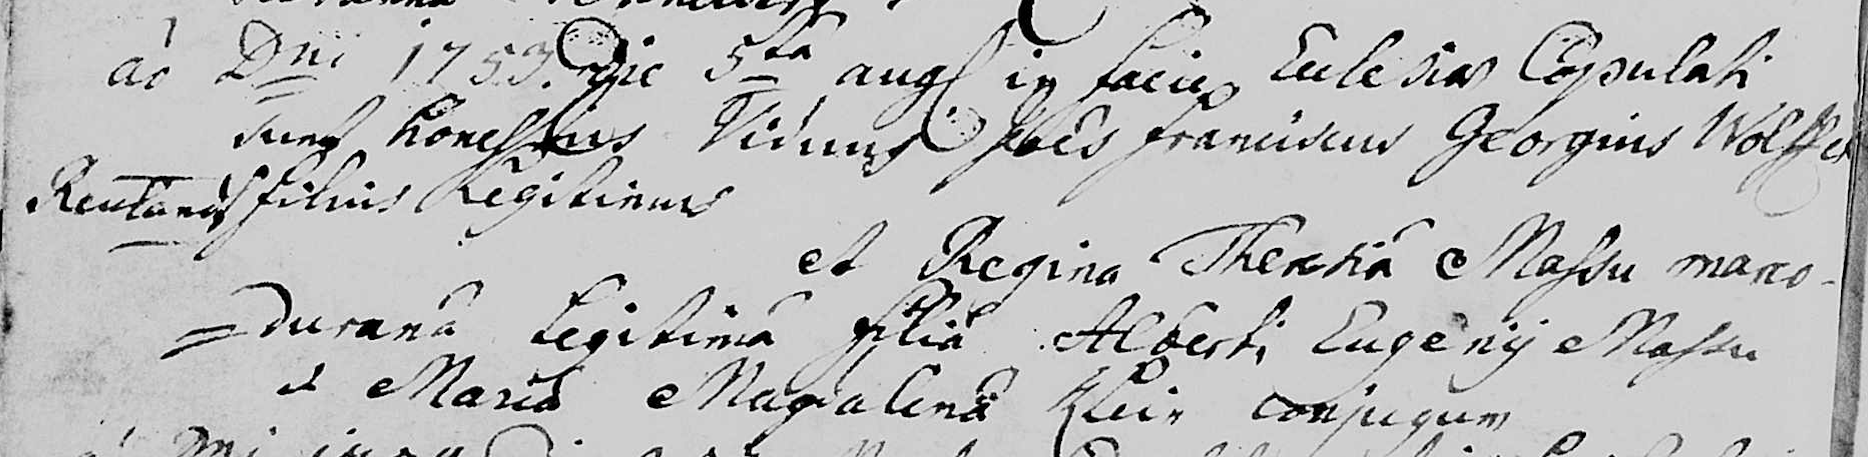 aó Dni 1753. die 5ta augs in facie Eclesiae Copulati
sunt honestus Viduus Joes franciscus Georgius Wolff
filius Legitimus
et Regina Theresia Massu marco-
=durana Legitima filia Alberti Eugenij Massu
et Maria Magdalena Klein conjugum